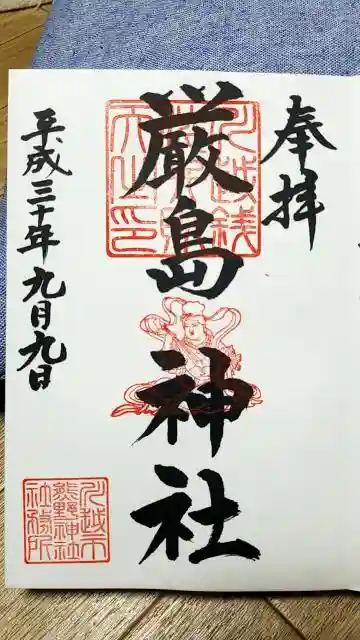 奉拝
厳島神社
平成三十年九月九日
川越市
熊野神社
社務所